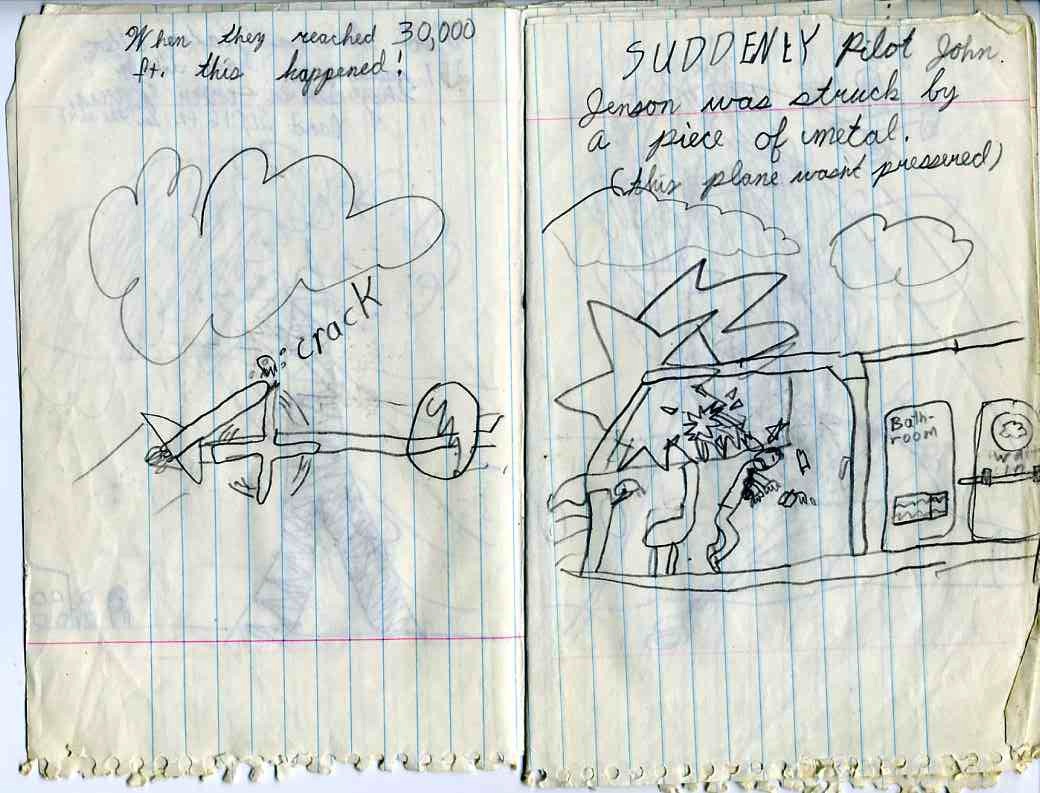 When they reached 30,000
ft. this happened!
crack
SUDDENLY Pilot John.
Jenson was struck by
a piece of metal.
(this plane wasn't pressered)
Bath-
room